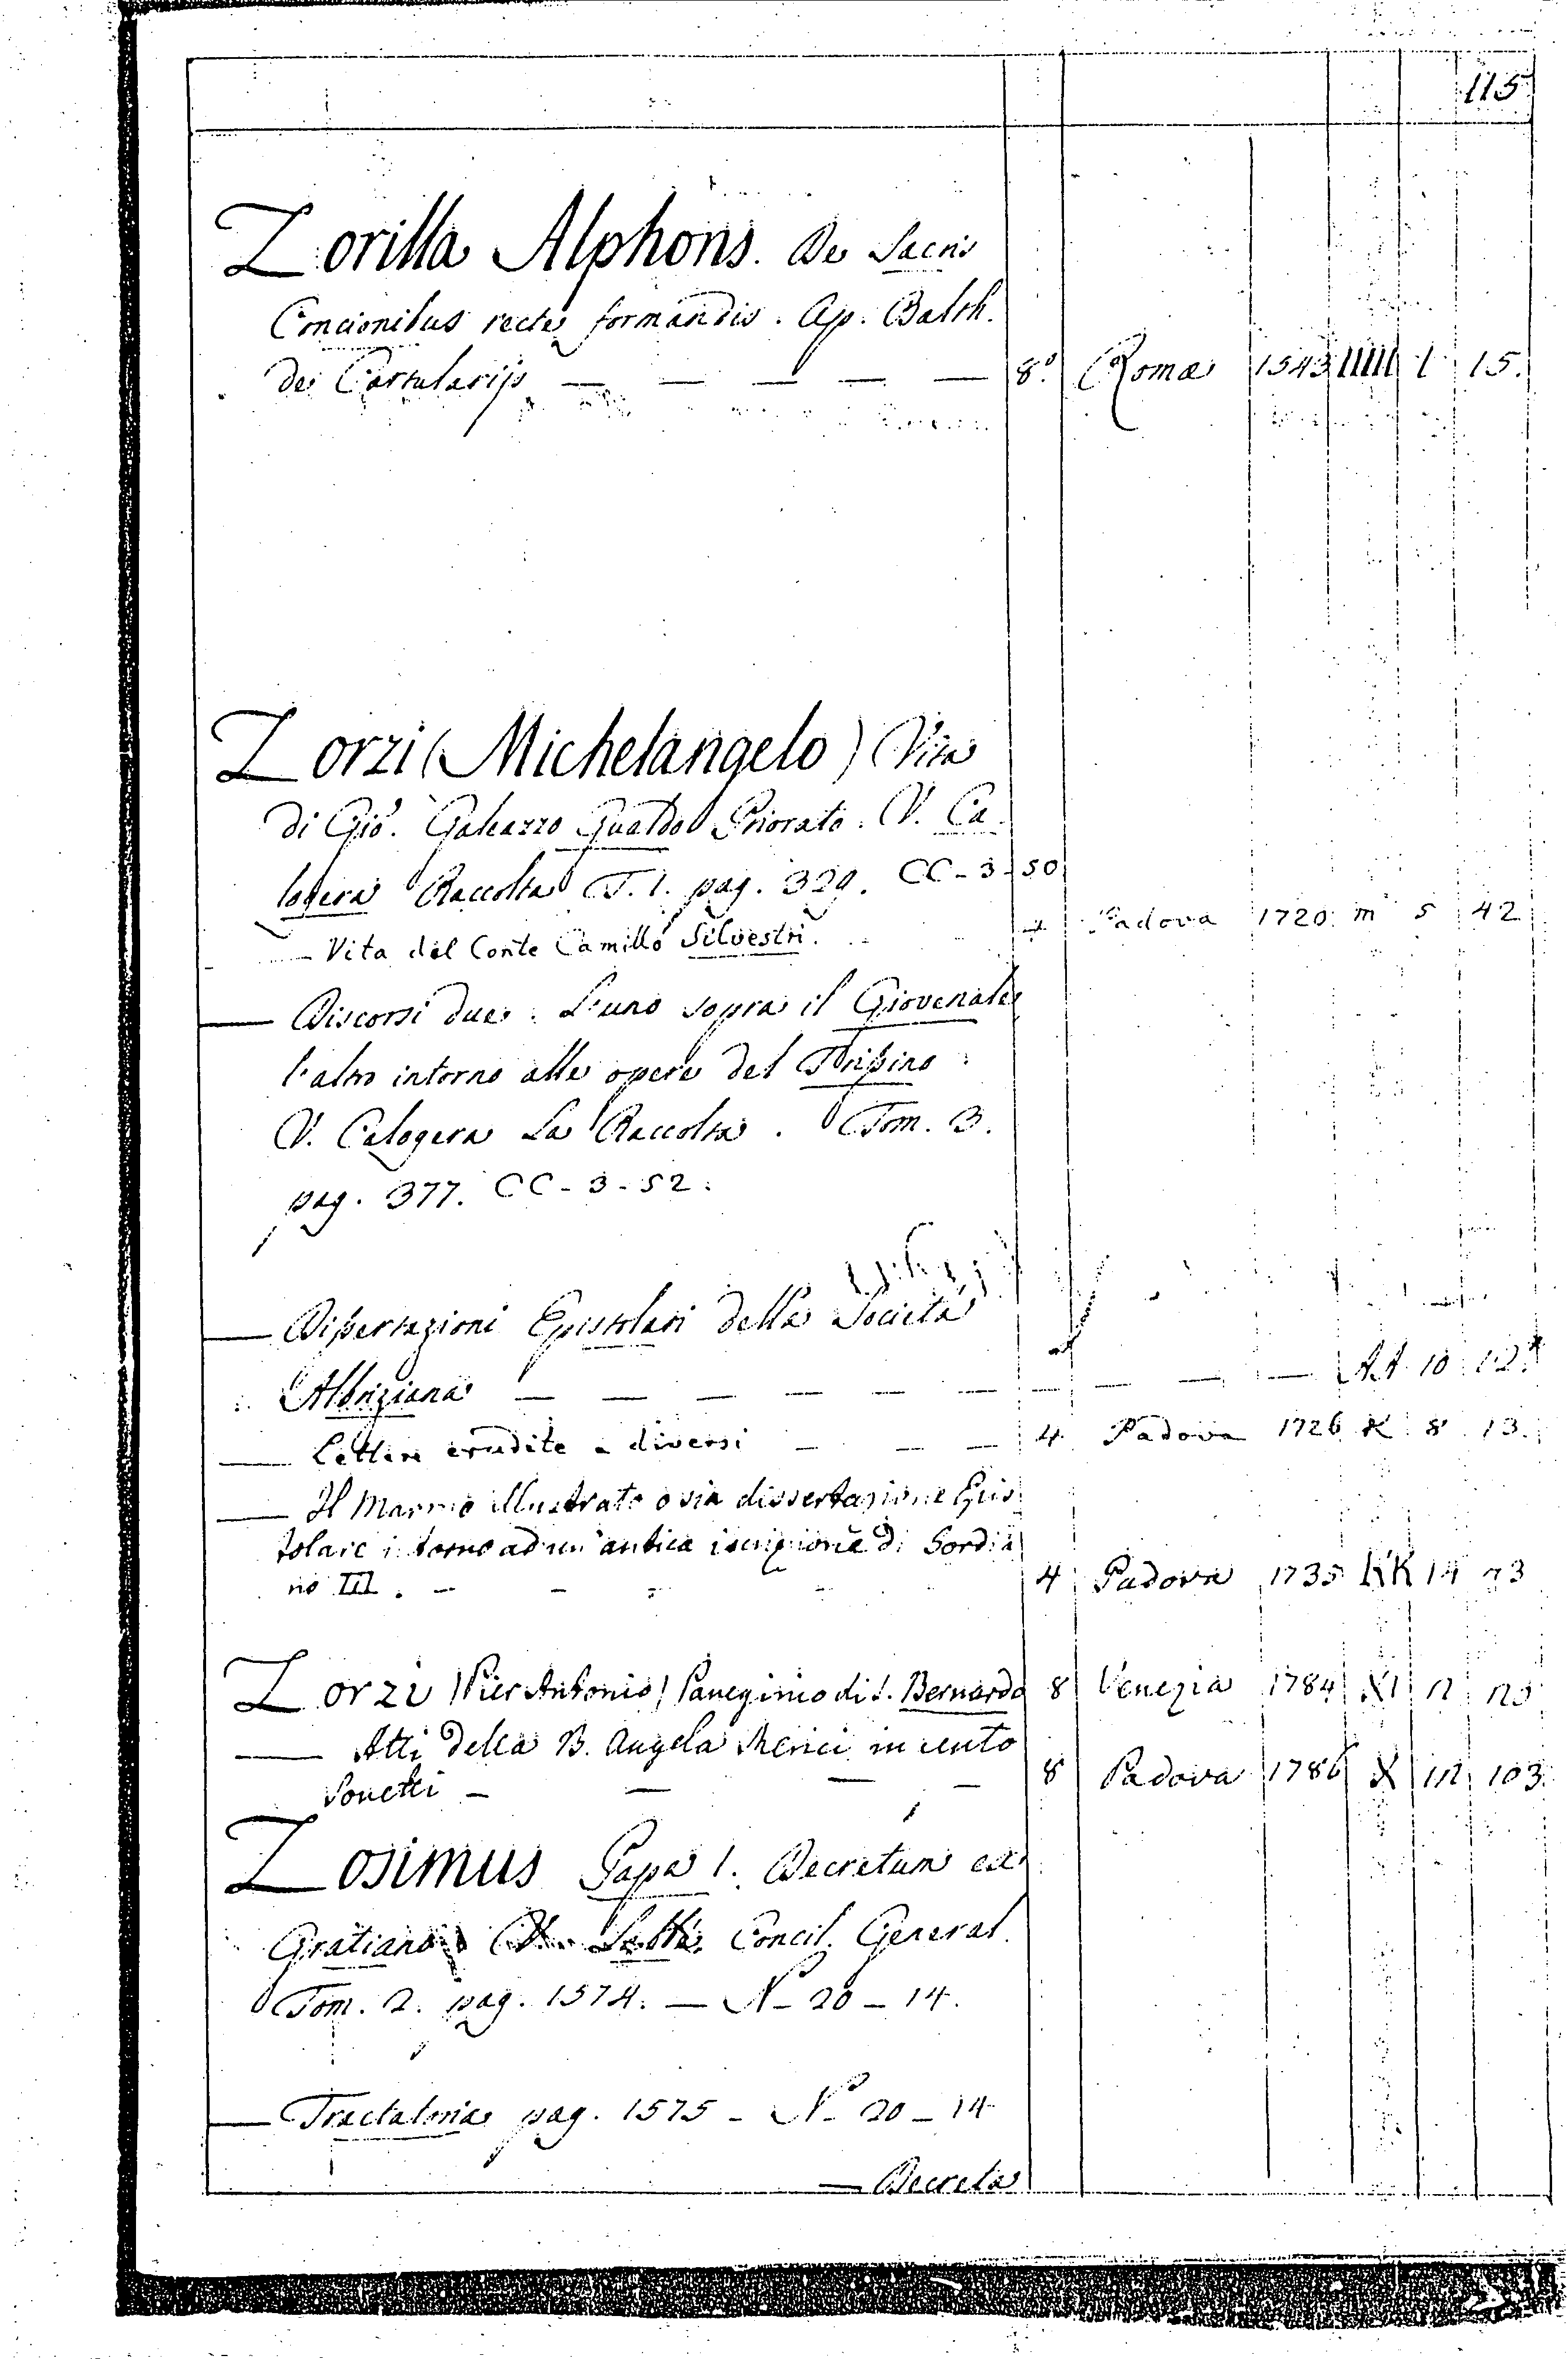 115
Zorilla Alphons. De Sacris
Concionibus recte formandis. Ap. Balth.
de Cartularijs — — — — — 8.° Romæ 1543 IIIII 1 15.
Zorzi (Michelangelo) Vita
di Gio. Galeazzo Gualdo Priorato. V. Ca
logera Raccolta T. 1. pag. 329. CC-3-50
— Vita del Conte Camillo Silvestri. 4 Padova 1720 m 5 42
— Discorsi due. L'uno sopra il Giovenale
l'altro intorno alle opere del Trissino
V. Calogera La Raccolta. Tom. 3.
pag. 377. CC-3-52.
— Dissertazioni Epistolari della Società
Albriziana — — — — — — — — — — AA 10 12*
— Lettere erudite a diversi — — — 4 Padova 1726 K 8 13.
— Il Marmo illustrato o sia dissertazione Epis
tolare intorno ad un'antica iscrizione di Gordia
no III. — — — — 4 Padova 1735 KK 14 73
Zorzi (Pier Antonio) Panegirico di S. Bernardo 8 Venezia 1784 XI
— Atti della B. Angela Merici in cento
Sonetti — — — — 8 Padova 1786 X 103
Zosimus Papa 1. Decretum ex
Gratiano Concil. General.
Tom. 2. pag. 1574. — N-20-14.
— Tractatoria pag. 1575 - N-20-14
— Decreta